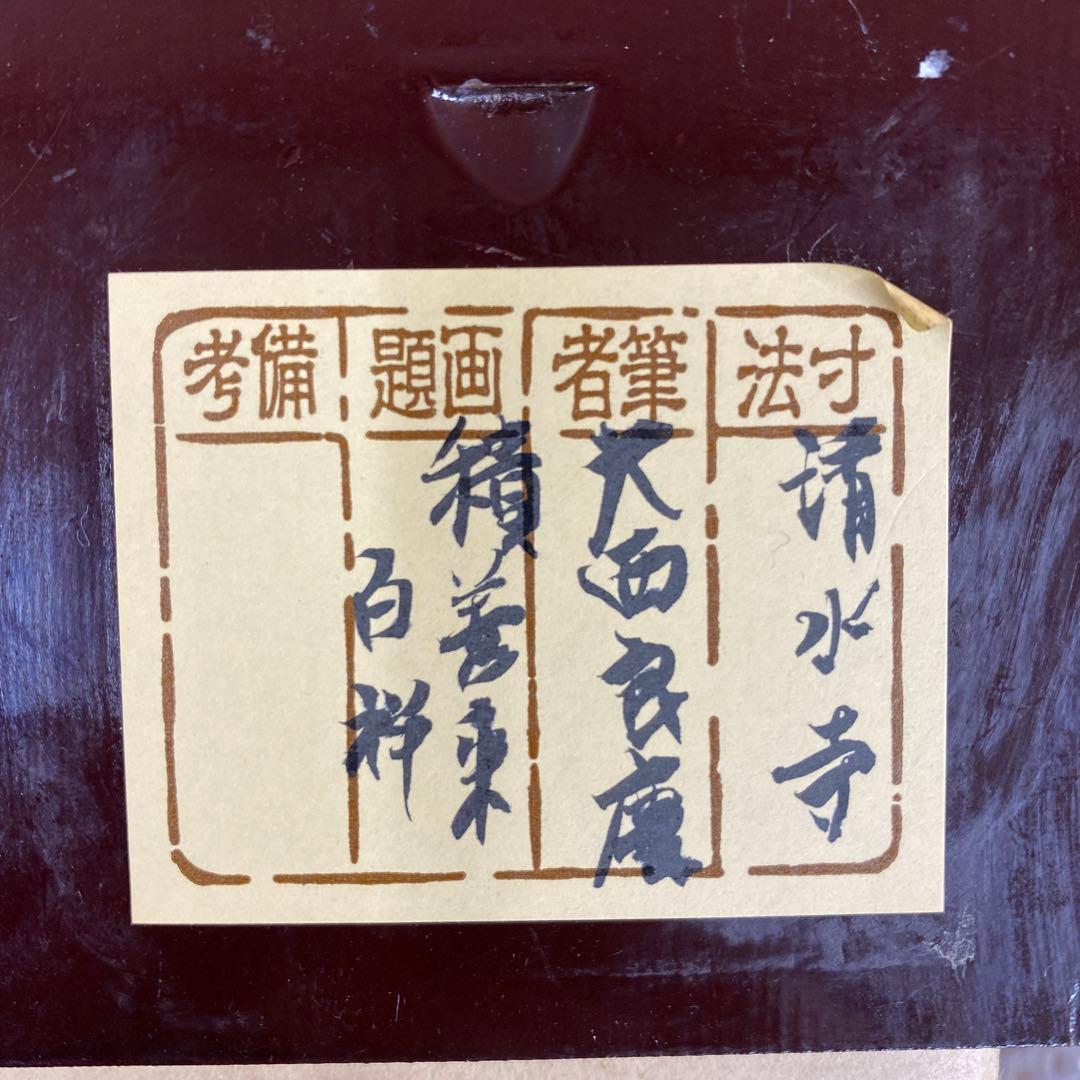 寸法
清水寺
筆者
大西良慶
画題
積善来
百祥
備考